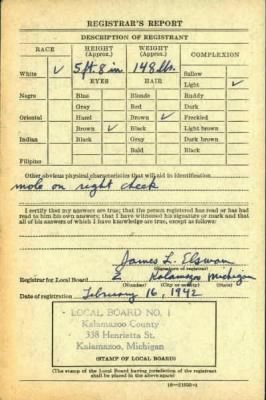 REGISTRAR'S REPORT
DESCRIPTION OF REGISTRANT
RACE HEIGHT (Approx.) WEIGHT (Approx.) COMPLEXION
White ✓ 5 ft. 8 in 148 lbs. Sallow
EYES HAIR Light ✓
Negro Blue Blonde Ruddy
Gray Red Dark
Oriental Hazel Brown ✓ Freckled
Brown ✓ Black Light brown
Indian Black Gray Dark brown
Bald Black
Filipino
Other obvious physical characteristics that will aid in identification
mole on right cheek
I certify that my answers are true; that the person registered has read or has
had read to him his own answers; that I have witnessed his signature or mark and that
all of his answers of which I have knowledge are true, except as follows:
James L.
(Signature of registrar)
Registrar for Local Board Kalamazoo Michigan
(Number) (City or county) (State)
Date of registration February 16, 1942
LOCAL BOARD NO. 1
Kalamazoo County
338 Henrietta St.
Kalamazoo, Michigan
(STAMP OF LOCAL BOARD)
(The stamp of the Local Board having jurisdiction of the registrant
shall be placed in the above space.)